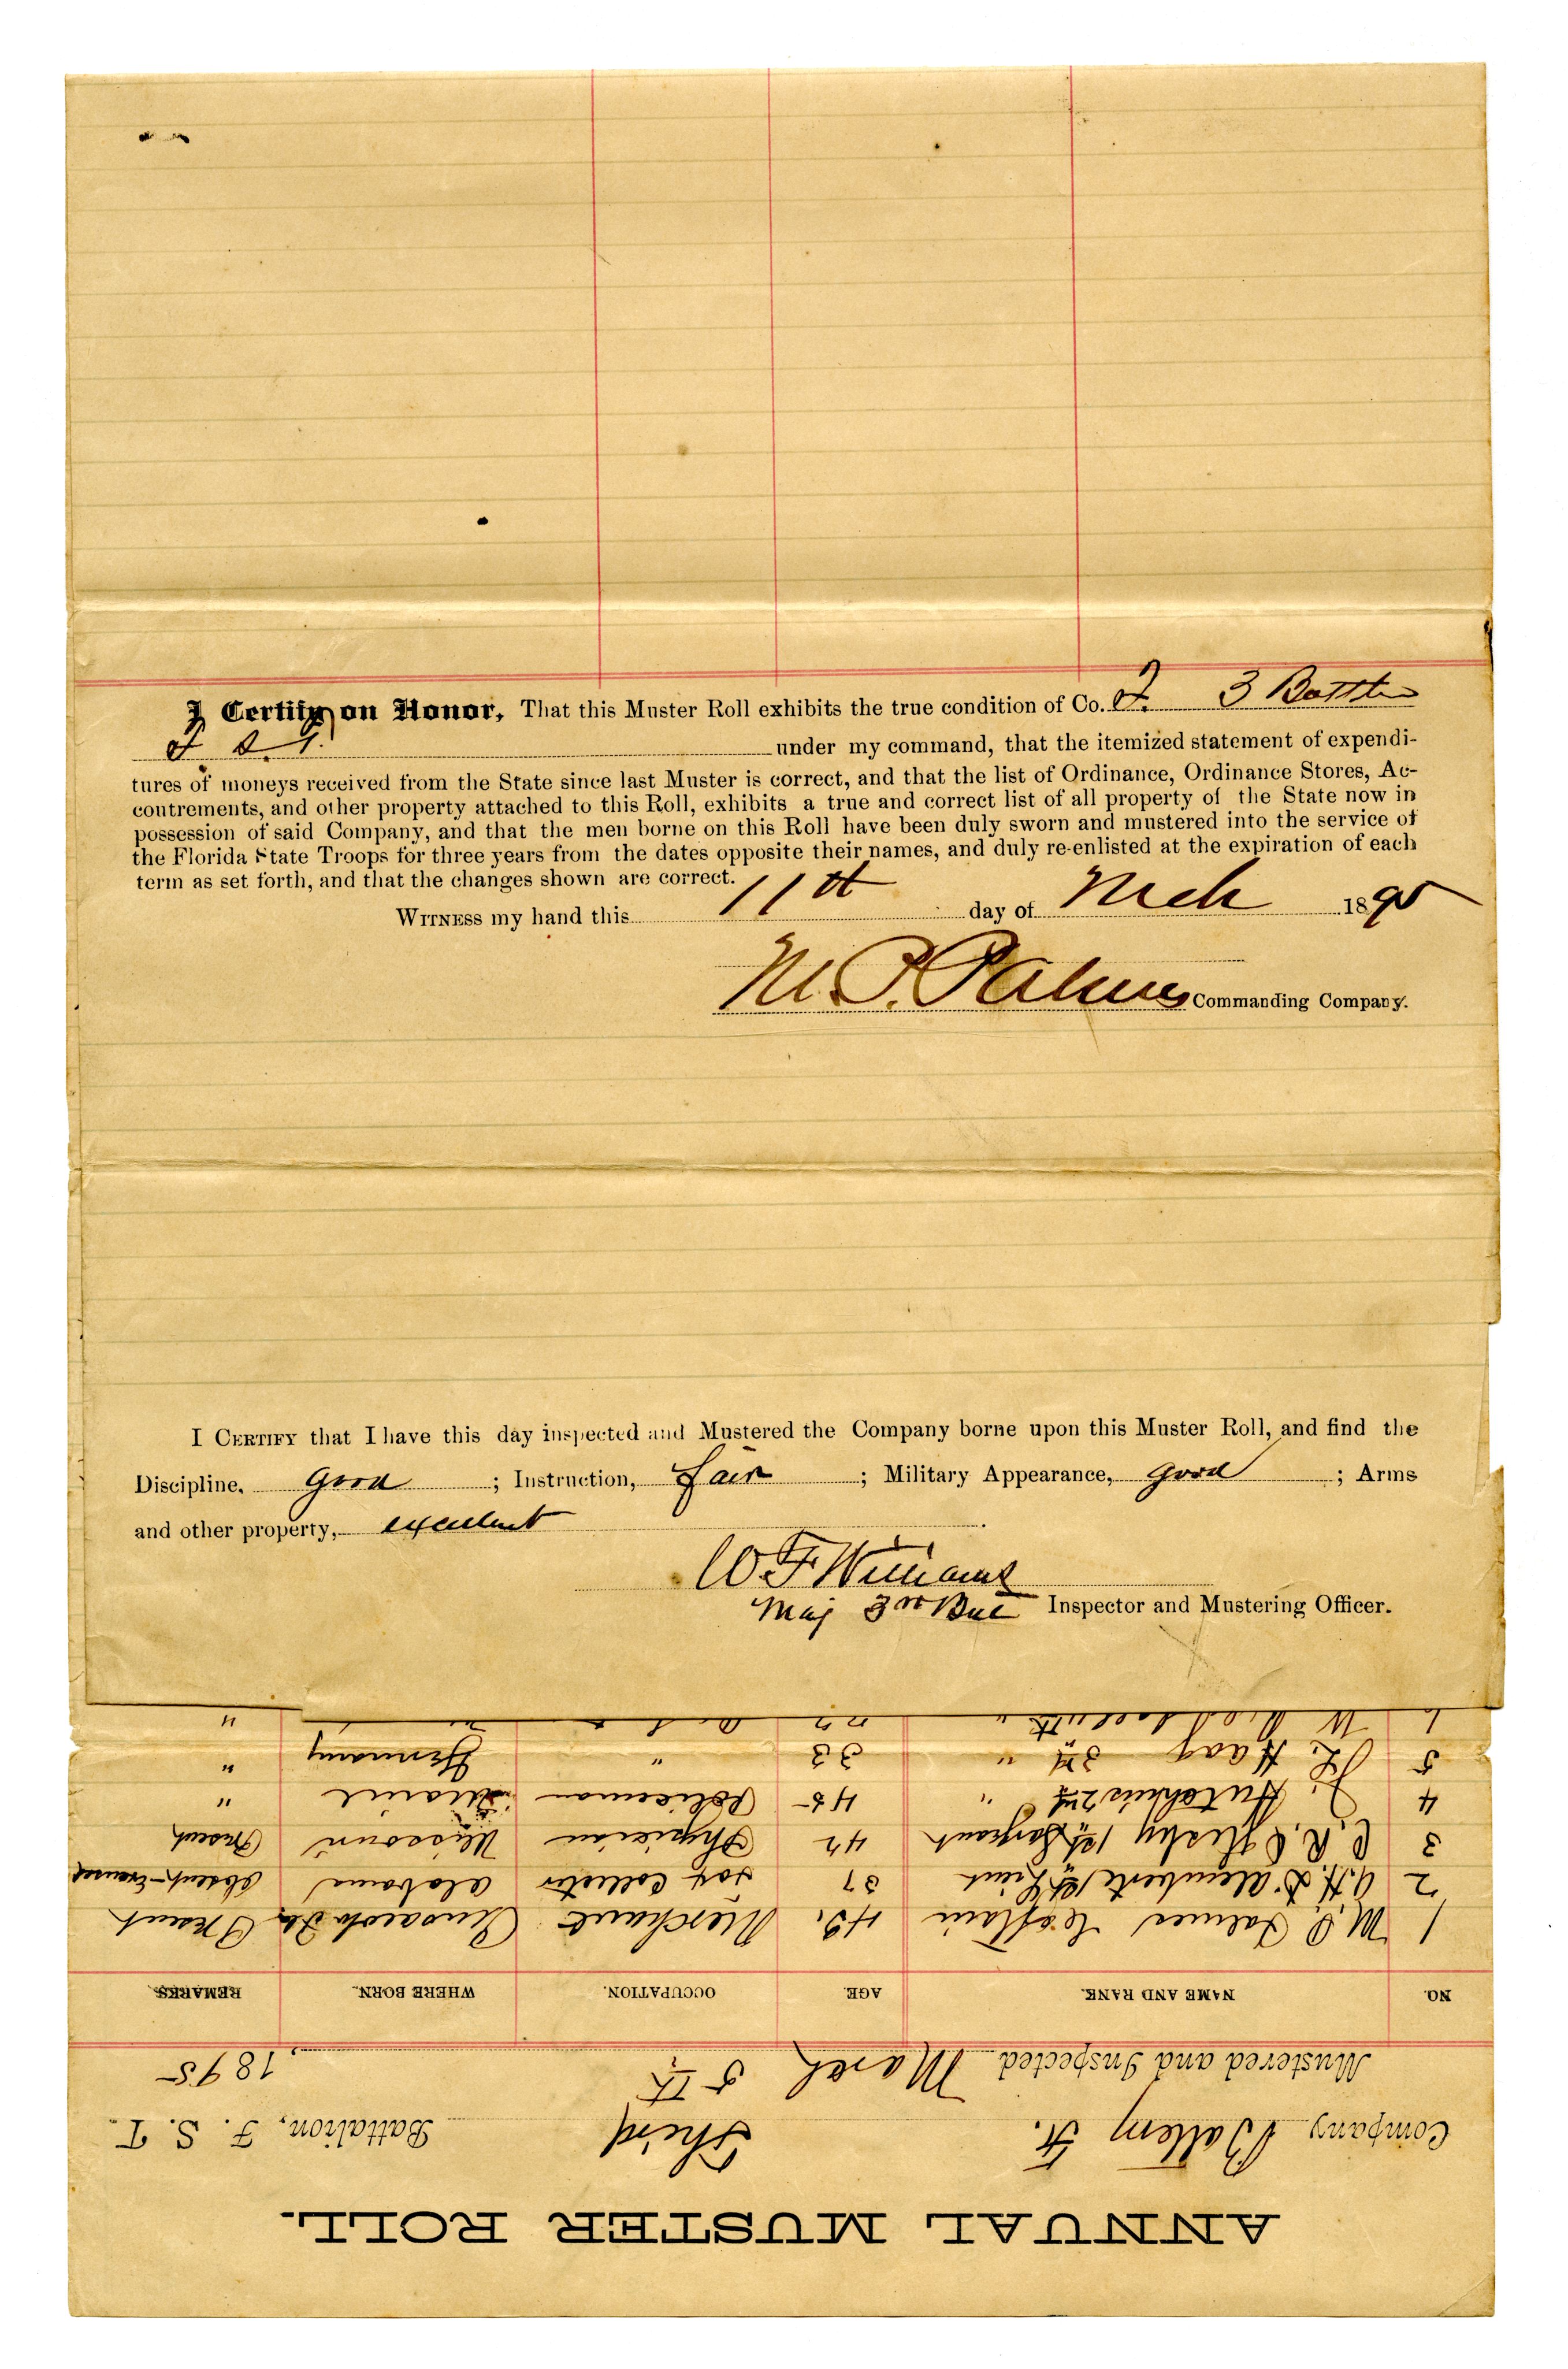 I Certify on Honor, That this Muster Roll exhibits the true condition of Co. F. 3 Battln
F S T. under my command, that the itemized statement of expendi-
tures of moneys received from the State since last Muster is correct, and that the list of Ordinance, Ordinance Stores, Ac-
contrements, and other property attached to this Roll, exhibits a true and correct list of all property of the State now in
possession of said Company, and that the men borne on this Roll have been duly sworn and mustered into the service of
the Florida State Troops for three years from the dates opposite their names, and duly re-enlisted at the expiration of each
term as set forth, and that the changes shown are correct.
WITNESS my hand this 11th day of Mch 1895
M. P. Palmes Commanding Company.
I CERTIFY that I have this day inspected and Mustered the Company borne upon this Muster Roll, and find the
Discipline, Good ; Instruction, fair ; Military Appearance, good ; Arms
and other property, excellent
W F Williams
Maj 3rd Bat Inspector and Mustering Officer.
ANNUAL MUSTER ROLL.
Company Battery F. Third Battalion, F. S. T.
Mustered and Inspected March 5th, 1895
NO. NAME AND RANK. AGE. OCCUPATION. WHERE BORN. REMARKS.
1 M. P. Palmes Captain 43 Merchant Pensacola Fla Present
2 A. H. D'Alemberte 1st Lieut 37 Tax Collector Alabama Absent-Excused
3 C. R. 1st Sargeant 42 Physician Missouri Present
4 J. Hutchins 2nd " 45 Policeman Maine "
5 L. Haag 3rd " 33 " Germany "